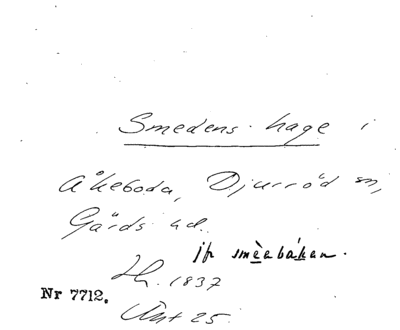 Smedens hage i
Åkeboda, Djurröd sn,
Gärds hd.
jfr smèabákan.
Hr. 1837
Nr 7712.
25.